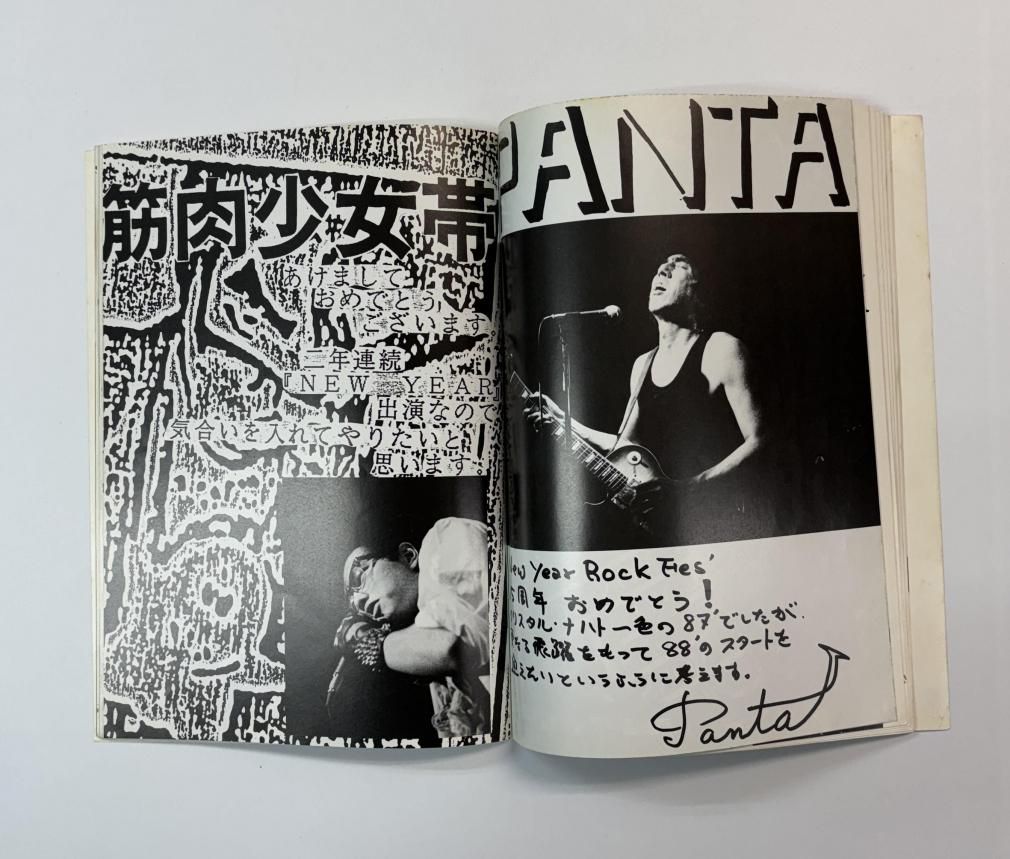 筋肉少女帯
あけまして
おめでとう
ございます。
二年連続
『NEW YEAR』
出演なので
気合いを入れてやりたいと
思います。
PANTA
New Year Rock Fes'
周年 おめでとう!
スタル・ナハト一色の87'でしたが、
飛躍をもって88'のスタートを
たいというように考えます。
Panta